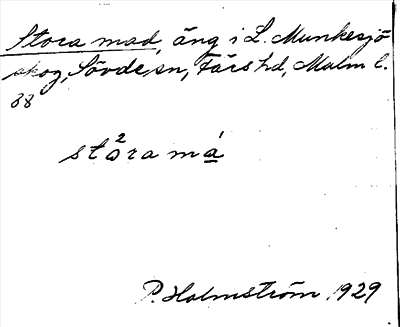 Stora mad, äng i L. Munkesjö
skog, Sövde sn, Färs hd, Malm l.
38
2 1
stora må
P. Holmström 1929